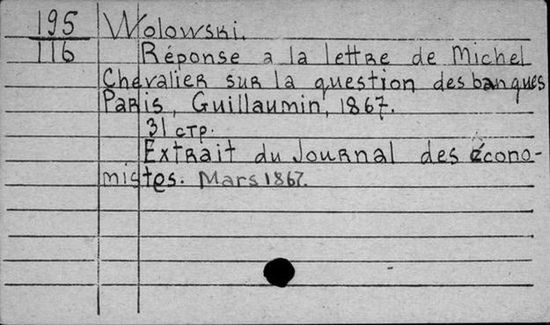 195 Wolowski.
116 Réponse a la lettre de Michel
Chevalier sur la question des banques
Paris, Guillaumin, 1867.
31 стр.
Extrait du Journal des écono-
mistes. Mars 1867.